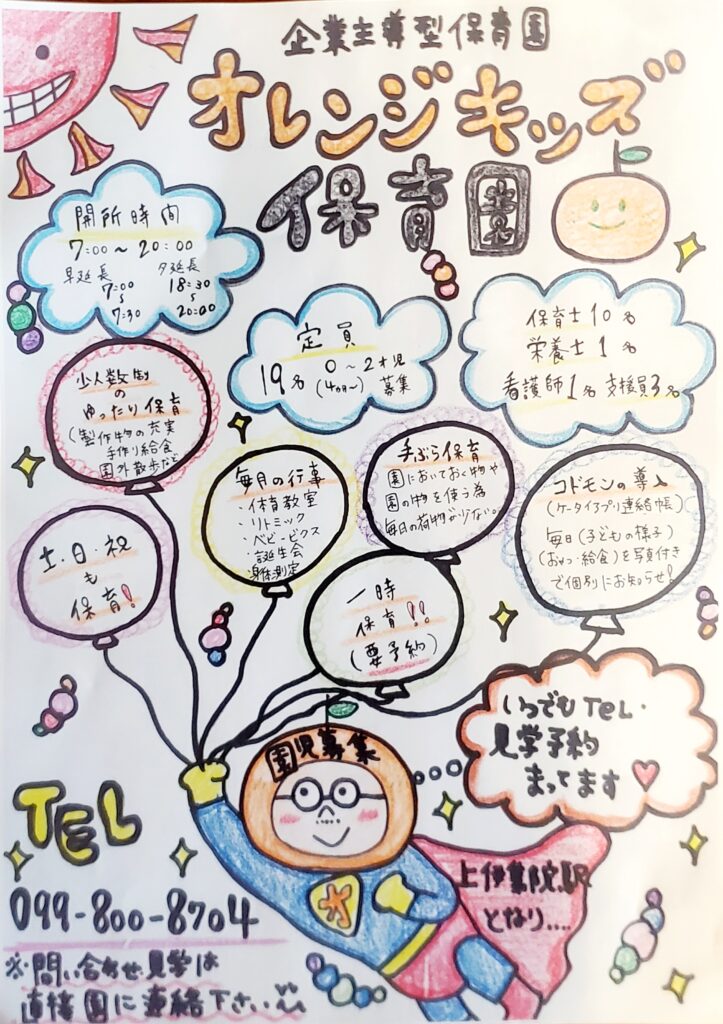 企業主導型保育園
オレンジキッズ
保育園
開所時間
7:00～20:00
早延長 夕延長
7:00 18:30
～ ～
7:30 20:00
定員
19名 0～2才児
(4カ月～) 募集
保育士10名
栄養士1名
看護師1名 支援員3名
少人数制
の
ゆったり保育
(製作物の充実
手作り給食
園外散歩など
毎月の行事
・体育教室
・リトミック
・ベビービクス
・誕生会
・身体測定
手ぶら保育
園においておく物や
園の物を使う為
毎日の荷物が少ない。
コドモンの導入
(ケータイアプリ連絡帳)
毎日(子どもの様子)
(おやつ・給食)を写真付き
で個別にお知らせ!
土・日・祝
も
保育!
一時
保育!!
(要予約)
いつでもTEL・
見学予約
まってます♡
園児募集
オ
上伊集院駅
となり....
TEL
099-800-8704
※問い合わせ・見学は
直接園に連絡下さい